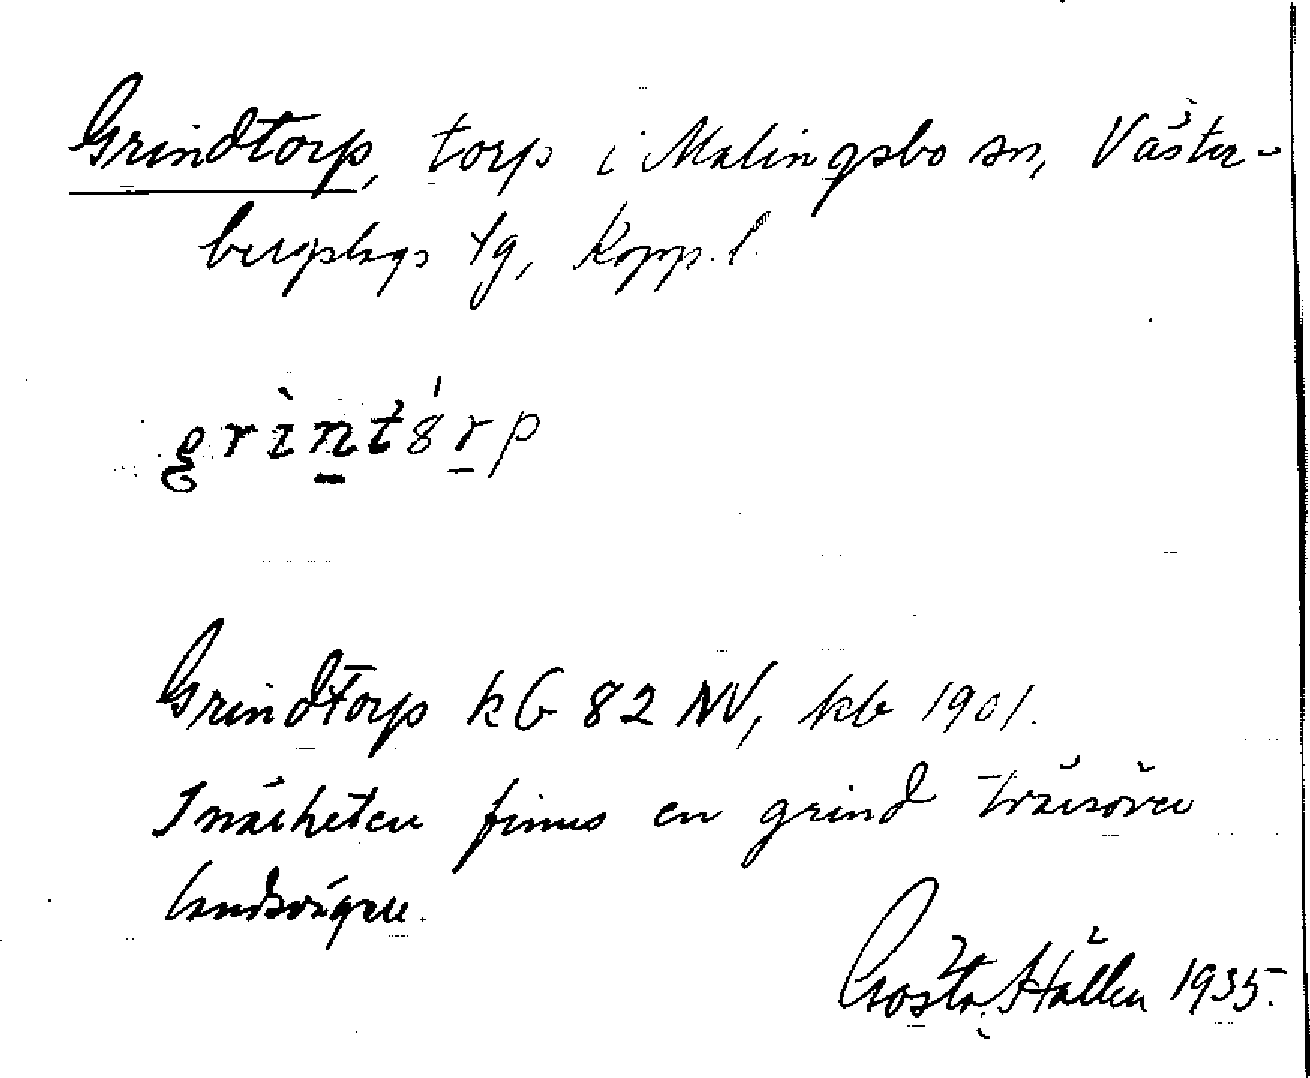 Grindtorp, torp i Malingsbo sn, Väster-
bergslags tg, Kopp. l.
grìntó̱rp
Grindtorp kG 82 NV, kb 1901.
I närheten finns en grind tvärsöver
landsvägen.
Gösta Hállen 1935.